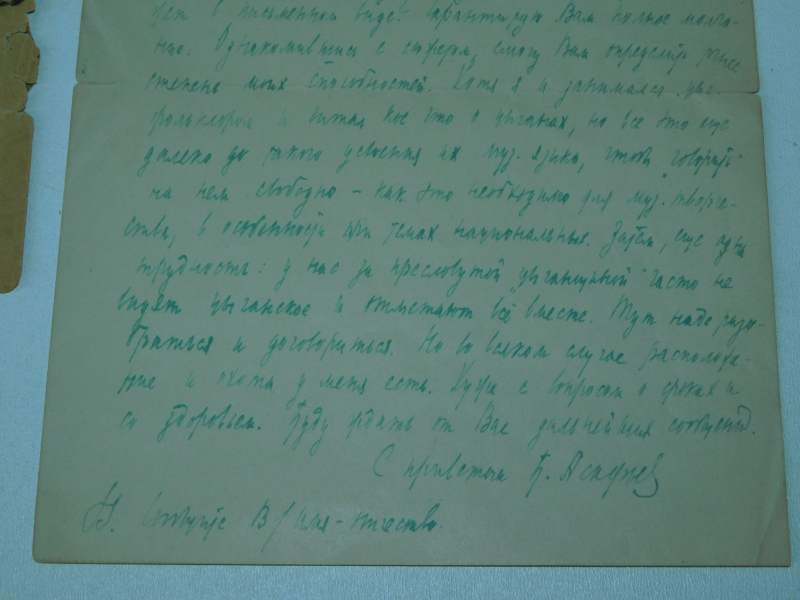 в письменном виде. Гарантирую Вам полное молча-
ние. Ознакомившись с сюжетом, смогу Вам определить точнее
степень моих способностей. Хотя я и занимался цыг.
фольклором и читал кое что о цыганах, но все это еще
далеко до такого усвоения их муз. языка, чтобы "говорить"
на нем свободно – как это необходимо для муз. творче-
ства, в особенности при темах национальных. Затем, еще одна
трудность: у нас за пресловутой "цыганщиной" часто не
видят цыганское и отметают всё вместе. Тут надо разо-
браться и договориться. Но во всяком случае расположе-
ние и охота у меня есть. Хуже с вопросом о сроках и
со здоровьем. Буду ждать от Вас дальнейших сообщений.
С приветом Б. Асафьев
Сообщите В/ имя-отчество.